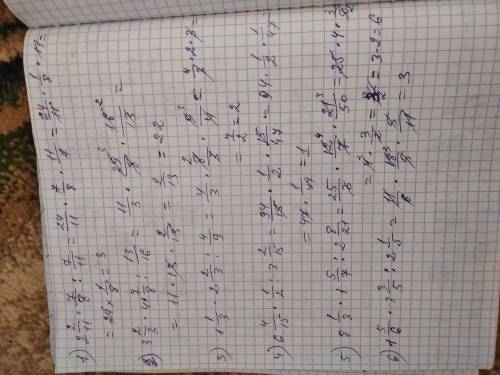 1) 2 2/11 · 7/8 : 7/11 = 24/11 · 7/8 · 11/7 = 24/11 · 1/8 · 11 =
= 24 × 1/8 = 3
2) 3 2/3 · 4 7/8 : 13/16 = 11/3 · /8 · 16/13 =
= 11 · 13 · 2/13 = 22
3) 1 1/3 · 2 2/3 : 4/9 = 4/3 · 8/3 · 9/4 =
= 2
4) 6 4/15 · 1/2 : 3 2/15 = 94/15 · 1/2 · 15/47 = 94 · 1/2 · 1/47
= 47 · 1/47 = 1
5) 8 1/3 · 1 5/7 : 2 8/21 = 25/3 · 12/7 · 21/50 = 25 · 4 · 3/50
= 3 · 2 = 6
6) 1 5/6 · 3 3/5 : 2 1/5 = 11/6 · 18/5 · 5/11 = 3